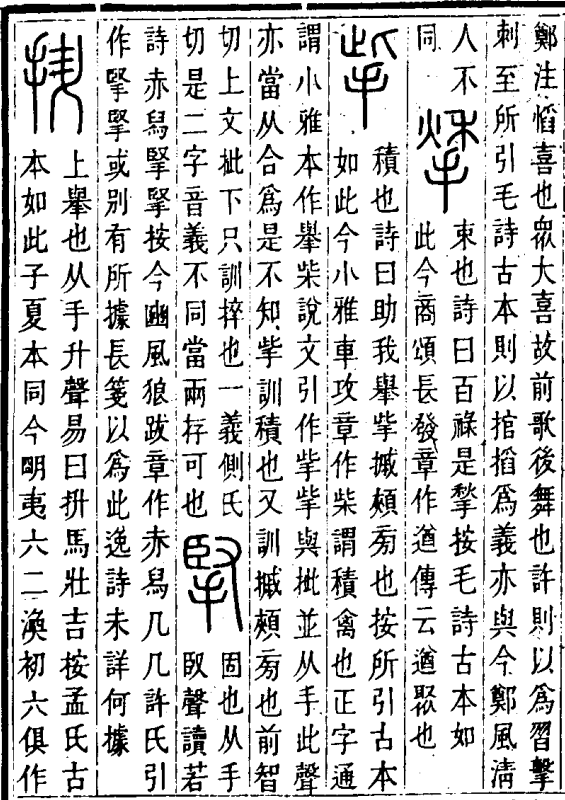 鄭注慆喜也眾大喜故前歌後舞也許則以為習擊
刺至所引毛詩古本則以捾搯為義亦與今鄭風清
人不
同
揫
束也詩曰百祿是揫按毛詩古本如
此今商頌長發章作遒傳云遒聚也
㧘
積也詩曰助我舉㧘搣頰旁也按所引古本
如此今小雅車攻章作柴謂積禽也正字通
謂小雅本作舉柴說文引作㧘㧘與批並从手此聲
亦當从合為是不知㧘訓積也又訓搣頰旁也前智
切上文批下只訓捽也一義側氏
切是二字音義不同當兩存可也
掔
固也从手
臤聲讀若
詩赤舄掔掔按今豳風狼跋章作赤舄几几許氏引
作掔掔或別有所據長箋以為此逸詩未詳何據
抍
上舉也从手升聲易曰抍馬壯吉按孟氏古
本如此子夏本同今明夷六二渙初六俱作